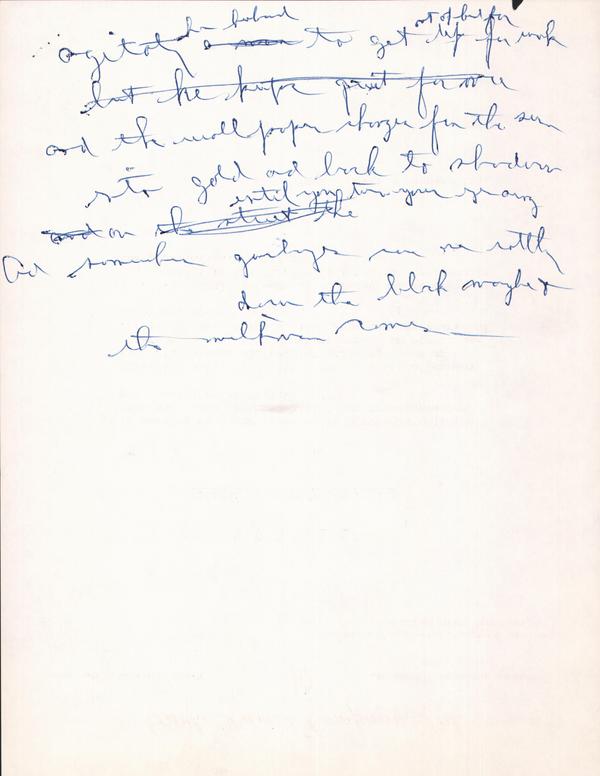 her husband out of bed for
agitating a man to get up for work
but he keeps quiet for more
and the wallpaper changes from the sun
into gold and back to shadow
until you turn your
and on the street the
And somewhere garbage cans are
down the block maybe
the milkman comes